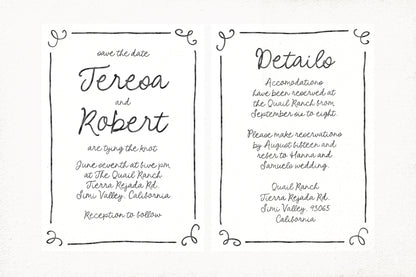 save the date
Teresa
and
Robert
are tying the knot
June seventh at five pm
at The Quail Ranch
Tierra Rejada Rd.
Simi Valley, California
Reception to follow
Details
Accomodations
have been reserved at
the Quail Ranch from
September six to eight.
Please make reservations
by August fifteen and
refer to Hanna and
Samuels wedding.
Quail Ranch
Tierra Rejada Rd.
Simi Valley, 93065
California